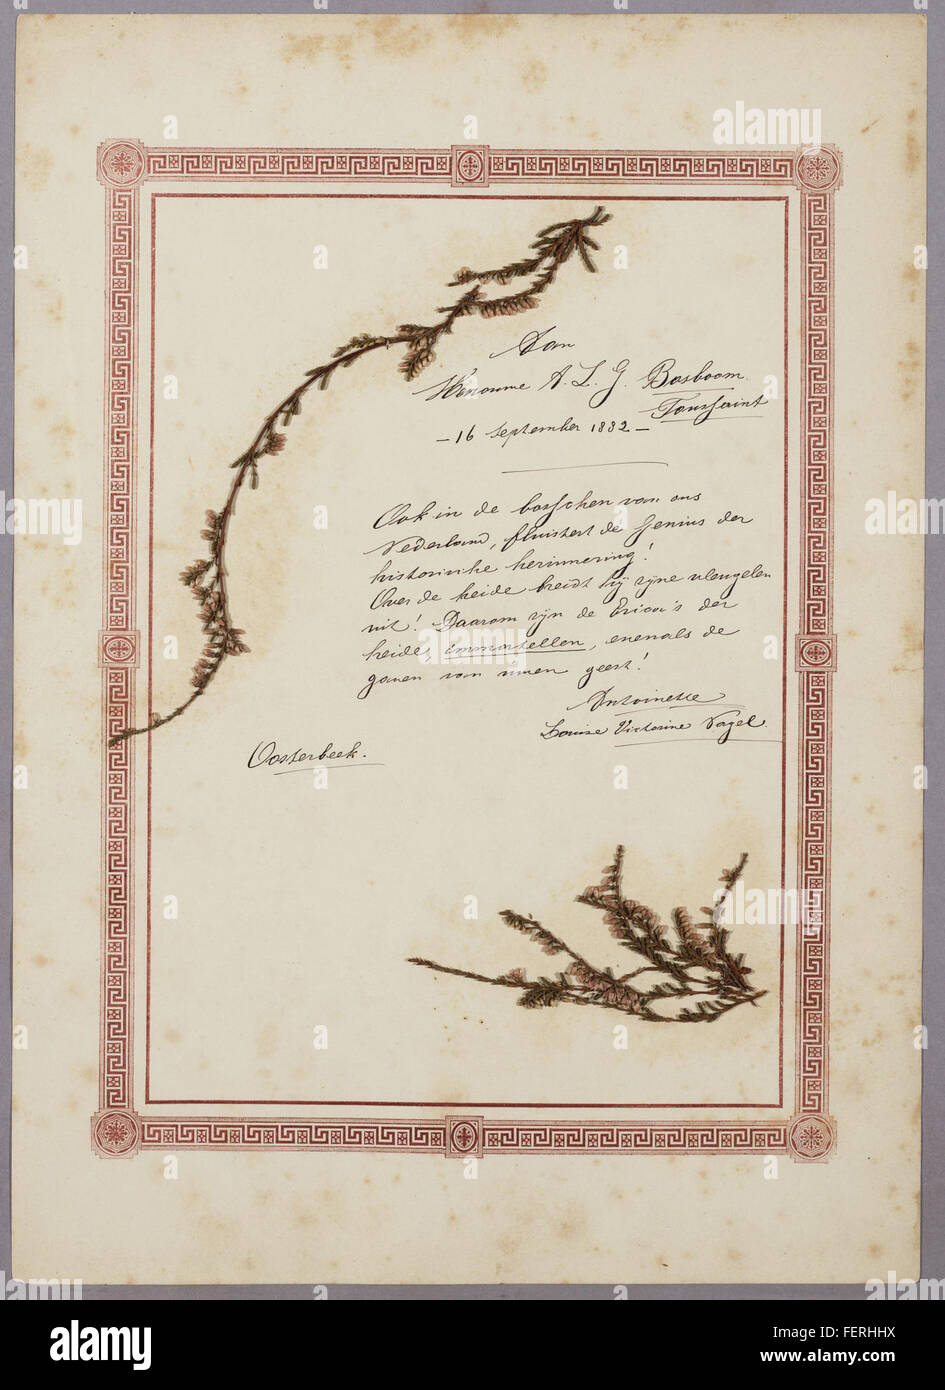 Aan
Mevrouwe A. L. G. Bosboom.
Toussaint
- 16 September 1882 -
Ook in de bosschen van ons
Nederland, fluistert de Genius der
historische herinnering!
Over de heide breidt hij zijne vleugelen
uit! Daarom zijn de Erica's der
heide, immortellen, evenals de
gaven van uwen geest!
Antoinette
Louise Victorine Nagel.
Oosterbeek.
a alamy stock photo
alamy
Image ID: FERHHX
www.alamy.com